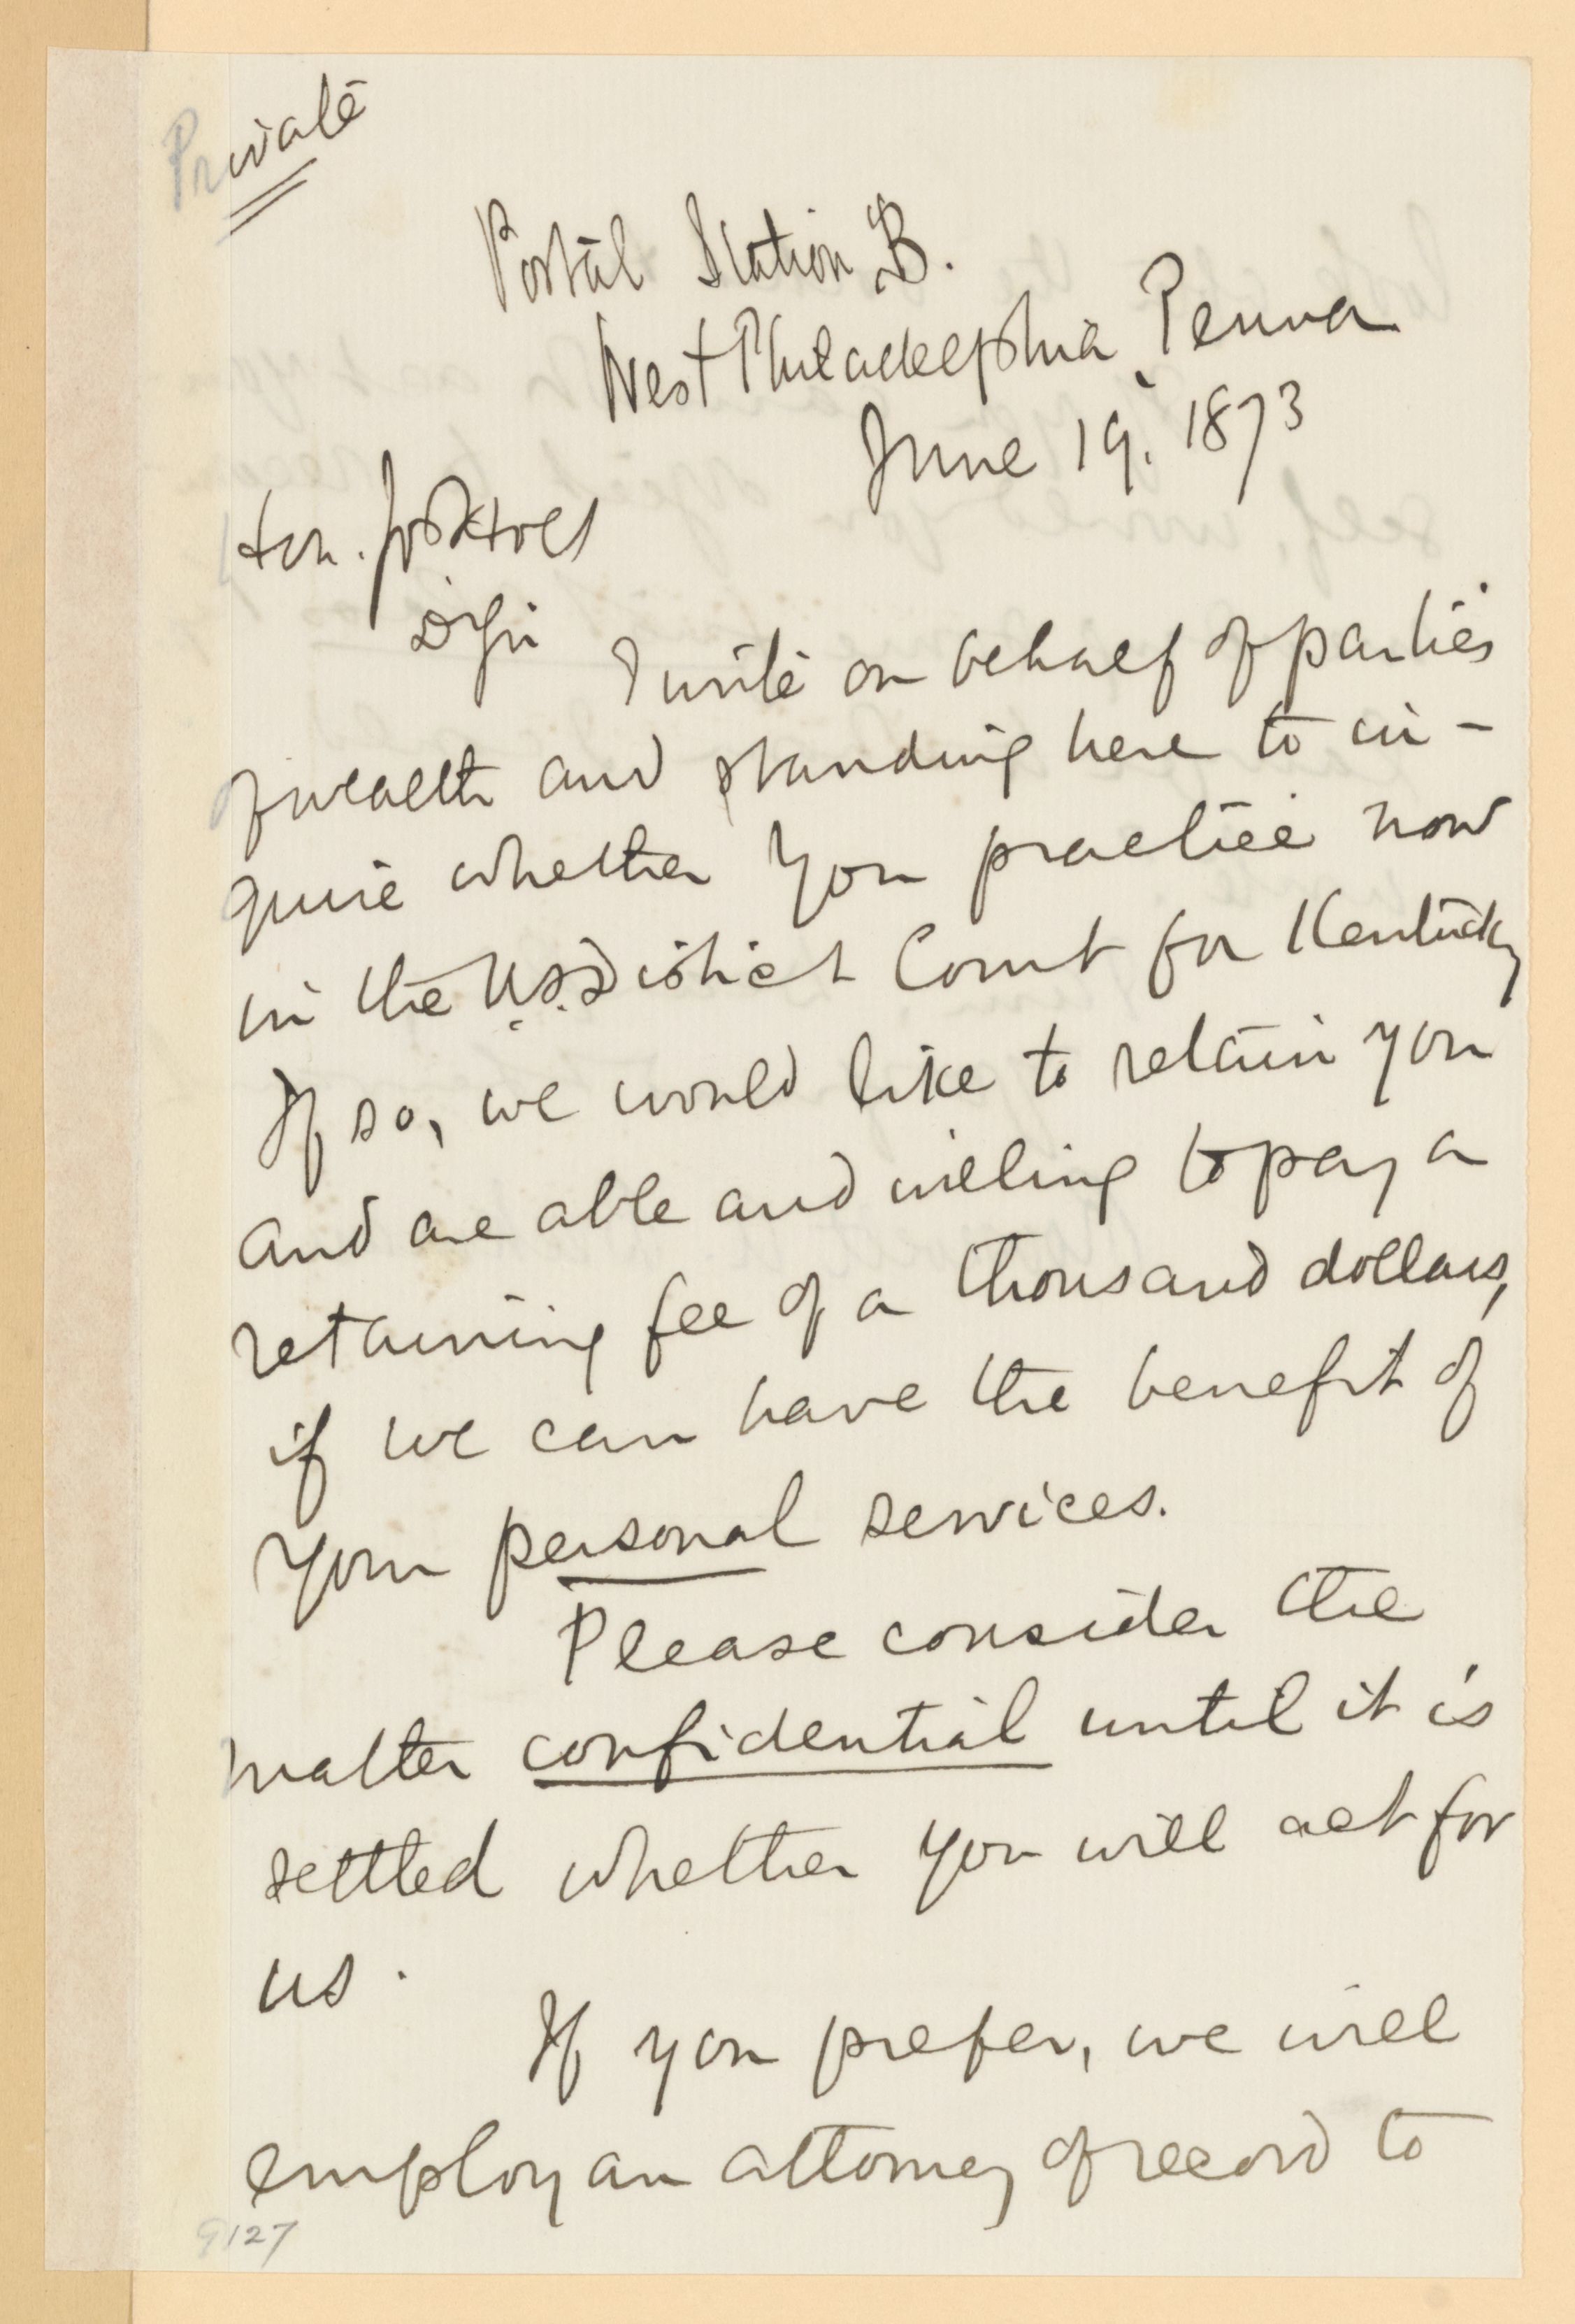 Private
Postal Station B.
West Philadelphia, Penna
June 19, 1873
Hon. Jos Holt
D Sir
I write on behalf of parties
of wealth and standing here to in-
quire whether you practice now
in the U.S. District Court for Kentucky
If so, we would like to retain you
and are able and willing to pay a
retaining fee of a thousand dollars,
if we can have the benefit of
your personal services.
Please consider the
matter confidential until it is
settled whether you will act for
us.
If you prefer, we will
employ an attorney of record to
9127